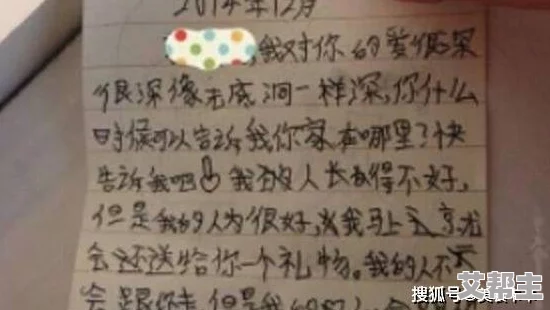 2014年12月
,我对你的爱很深
很深像无底洞一样深,你什么
时候可以告诉我你家在哪里了快
告诉我吧 我的人长得不好,
但是我的人为很好,我马上 就
会还送给你一个礼物。我的人不
会跟你走 但是我的
搜狐号
艾帮主